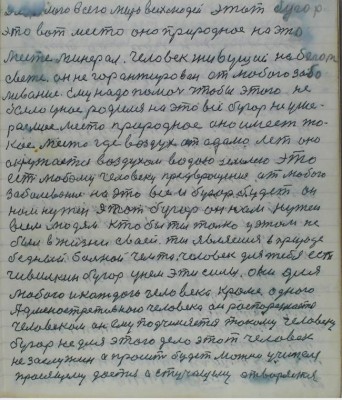 для всего мира всех людей этот бугор
это вот место оно природное на это
месте минерал. Человек живущий на белом
свете он не гарантирован от любого забо
ливание ему надо помоч чтобы этого не
было иное родился на это всё бугор не уме-
раемое место природное оно имеет та-
кое место где воздух от адамо лет оно
окружается воздухом водою землею это
ест любому человеку предупреждение от любого
заболевание на это всем бугор будет он
нам нужен этот бугор он нам нужен
всем людям кто бы ты только у этом не
был в жизни своей ты явился в природе
бедный больной чем та, человек для тебя есть
чивилкин бугор у нем эти силы, они для
любого и каждого человека кроме одного
Административного человека он распоряжается
человеком он ему подчиняется такому человеку
бугор не для этого дело этот человек
не заслужил а просит будет можно учителя
просящему дастся а стучащему отварятся